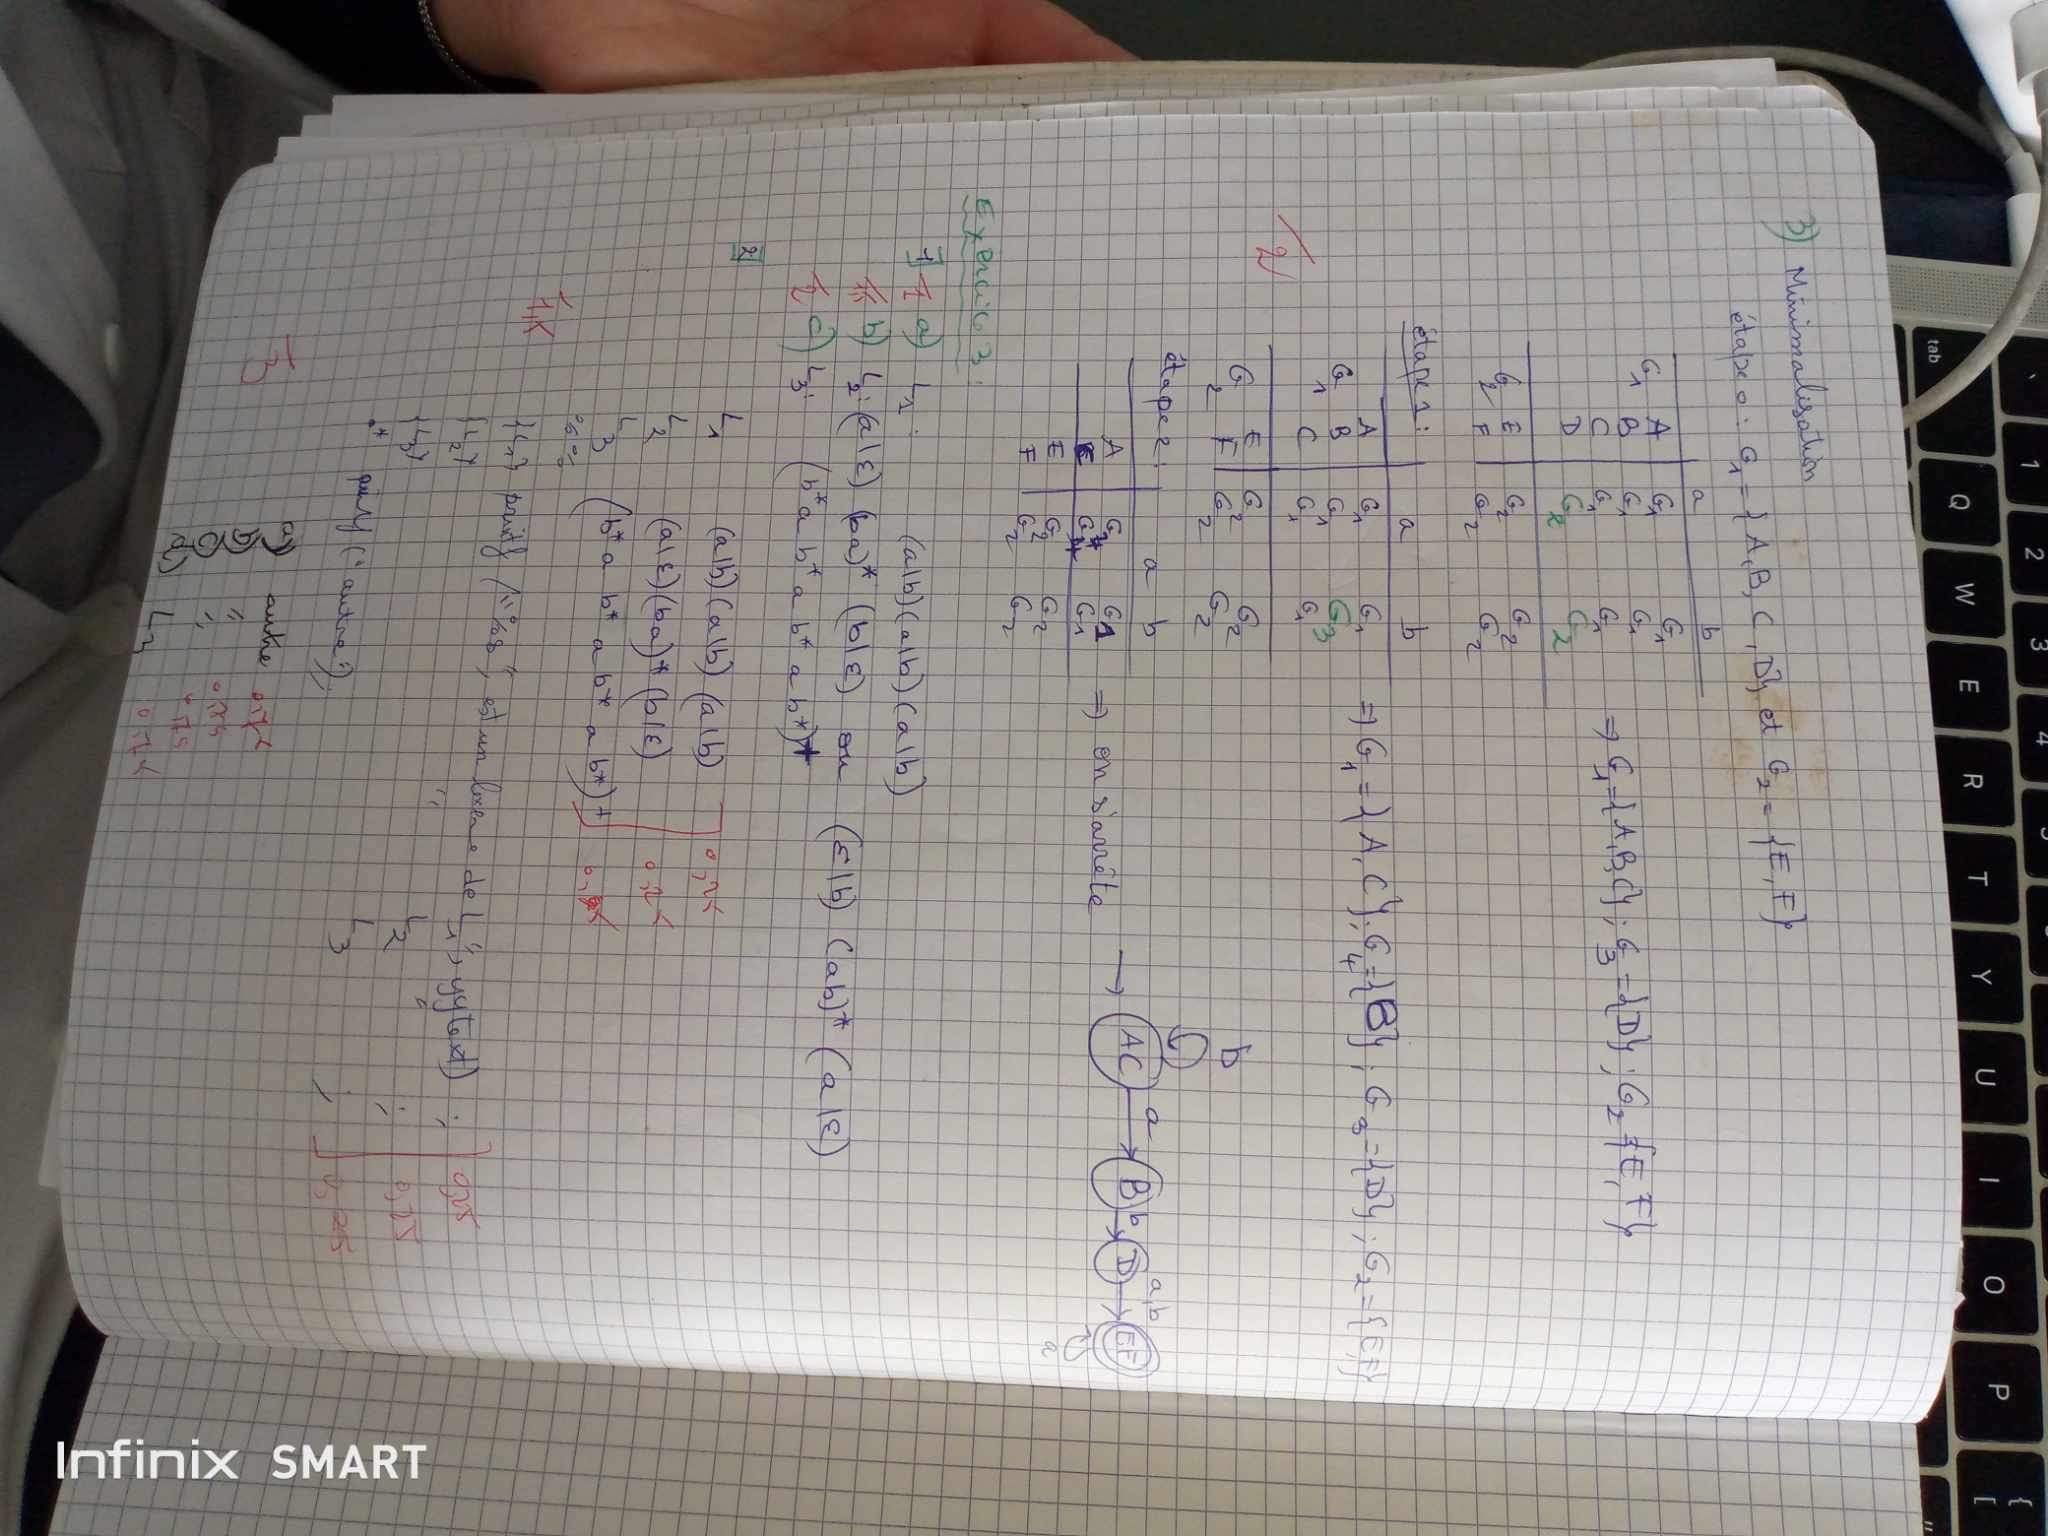 ` 1 2 3 4 5
tab Q W E R T Y U I O P { [
3) Minimalisation
étape 0 : G1 = {A, B, C, D} et G2 = {E, F}
a b
G1 A G1 G1
B G1 G1
C G1 G1
D G2 G2
⇒ G1 = {A, B, C} ; G3 = {D} ; G2 = {E, F}
G2 E G2 G2
F G2 G2
étape 1 :
a b
A G1 G1
G1 B G1 G3
C G1 G1
⇒ G1 = {A, C} ; G4 = {B} ; G3 = {D} ; G2 = {E,F}
/2
G2 E G2 G2
F G2 G2
étape 2 :
a b
A G4 G1
C G4 G1
E G2 G2
F G2 G2
⇒ on s'arrête
b
→ AC a B b D a,b EF
a
Exercice 3 :
1) /1 a) L1 : (a|b) (a|b) (a|b)
/1,5 b) L2 : (a|ε) (ba)* (b|ε) ou (ε|b) (ab)* (a|ε)
/2 c) L3 : (b* a b* a b* a b*)+
2
L1 (a|b) (a|b) (a|b) 0,25
L2 (a|ε) (ba)* (b|ε) 0,25
L3 (b* a b* a b* a b*)+
%%
/1,5
{L1} printf ("%s", est un lexème de L1", yytext) ; 0,25
{L2} " L2 " ; 0,25
{L3} L3 ; 0,25
.* printf ("autre") ;
/3
a) autre 0,75
b) " 0,75
c) " 0,75
d) L3 0,75
Infinix SMART